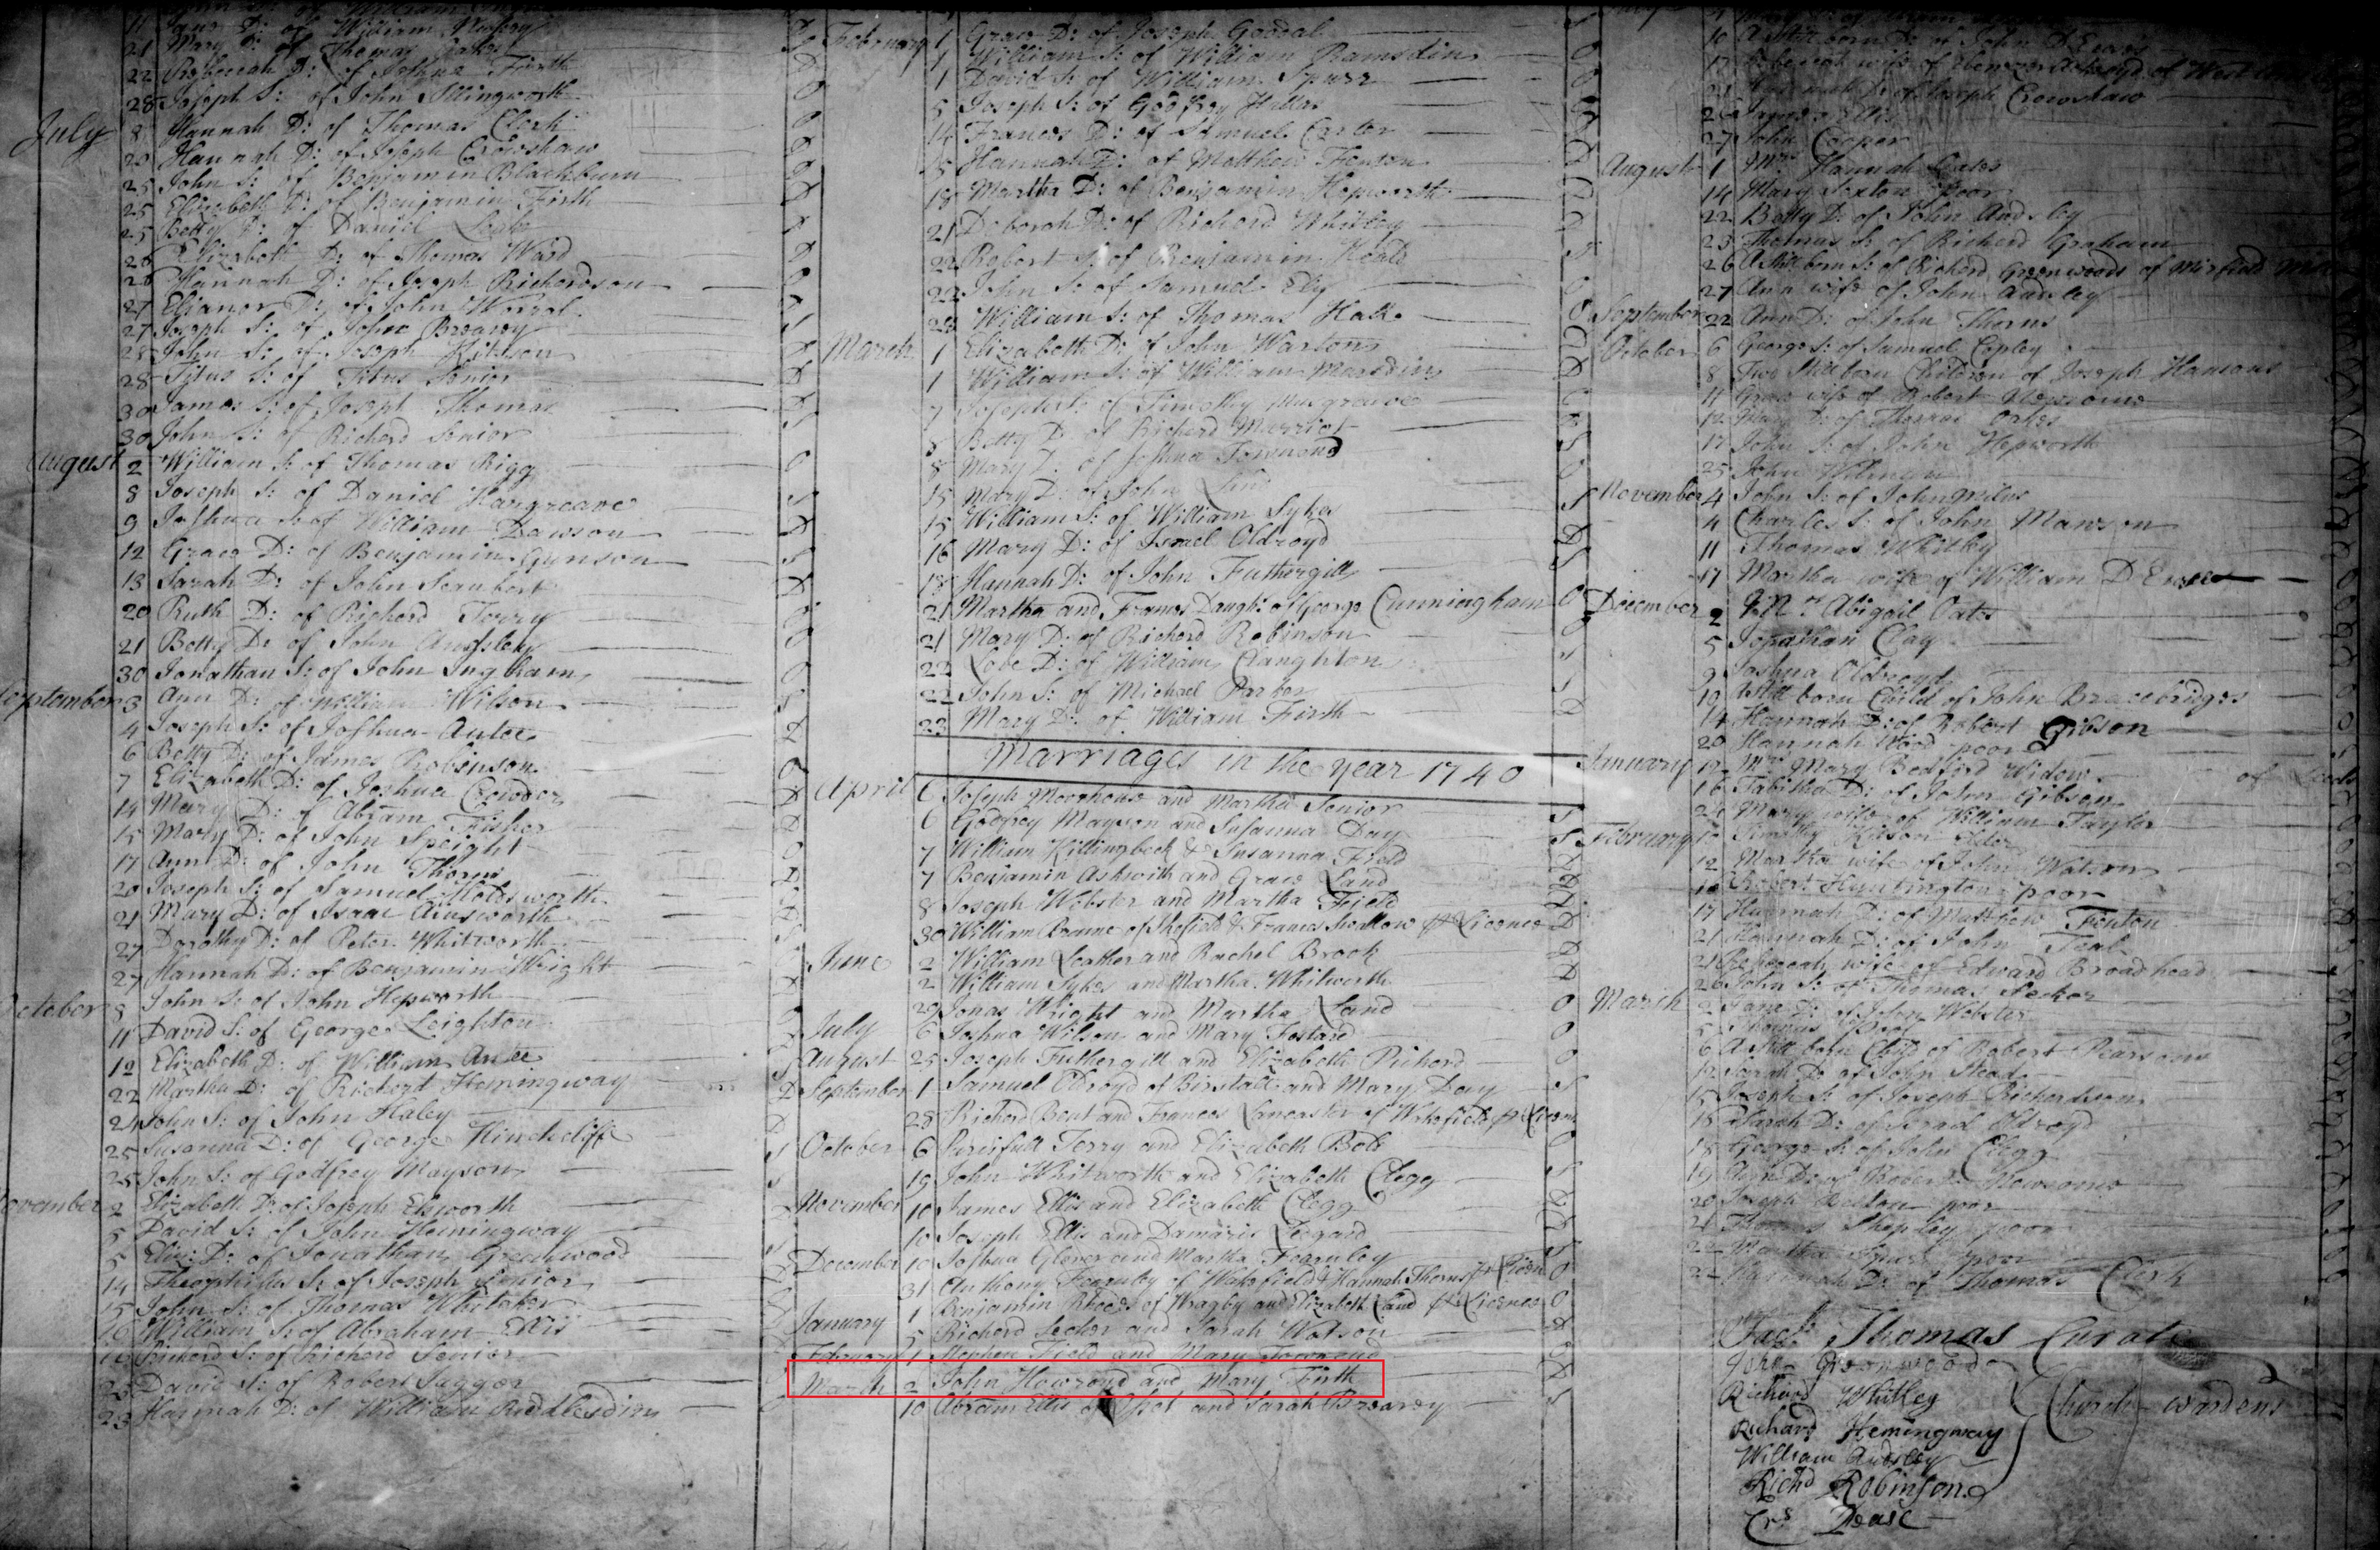 11 Jane D: of William
21 Mary D: of Thomas Oakes
22 Rebeccah D: of Joshua Firth
28 Joseph S: of John Illingworth
July 8 Hannah D: of Thomas Clerk
20 Hannah D: of Joseph Crowshaw
25 John S: of Benjamin Blackburn
25 Elizabeth D: of Benjamin Firth
25 Betty D: of Daniel
26 Elizabeth D: of Thomas Ward
26 Hannah D: of Joseph Richardson
27 Elianor D: of John Worral
27 Joseph S: of John Brearey
28 John S: of Joseph Kitson
28 Titus S: of Titus Senior
30 James S: of Joseph Thomas
30 John S: of Richard Senior
August 2 William S: of Thomas Rigg
8 Joseph S: of Daniel Hargreave
9 Joshua S: of William Dawson
12 Grace D: of Benjamin Gunson
13 Sarah D: of John
20 Ruth D: of Richard Terry
21 Betty D: of John Audsley
30 Jonathan S: of John Ingham
September 3 Ann D: of William Wilson
4 Joseph S: of Joshua Autee
6 Betty D: of James Robinson
7 Elizabeth D: of Joshua Crowder
14 Mary D: of Abram Fisher
15 Mary D: of John Speight
17 Ann D: of John Thorns
20 Joseph S: of Samuel Holdsworth
21 Mary D: of Isaac Ainsworth
27 Dorothy D: of Peter Whitworth
27 Hannah D: of Benjamin Wright
October 8 John S: of John Hepworth
11 David S: of George Leighton
12 Elizabeth D: of William Autee
22 Martha D: of Richard Hemingway
24 John S: of John Haley
25 Susanna D: of George Hinchcliffe
25 John S: of Godfrey Mayson
November 2 Elizabeth D: of Joseph Elsworth
5 David S: of John Hemingway
5 Eliz: D: of Jonathan Greenwood
14 Theophilus S: of Joseph Senior
15 John S: of Thomas Whitaker
16 William S: of Abraham Ellis
16 Richard S: of Richard Senior
23 David S: of Robert Jaggar
23 Hannah D: of William Riddlesdin
February 1 Grace D: of Joseph Goodal
1 William S: of William Ramsdin
1 David S: of William Spurr
5 Joseph S: of Godfrey Hallas
14 Frances D: of Samuel Carter
15 Hannah D: of Matthew Fenton
18 Martha D: of Benjamin Hepworth
21 Deborah D: of Richard Whitley
22 Robert S: of Benjamin Heald
22 John S: of Samuel Ely
24 William S: of Thomas Hall
March 1 Elizabeth D: of John Warton
1 William S: of William Marsdin
7 Joseph S: of Timothy Musgrave
8 Betty D: of Richard Marriot
8 Mary D: of Joshua Townend
15 Mary D: of John Land
15 William S: of William Sykes
16 Mary D: of Israel Oldroyd
18 Hannah D: of John Futhergill
21 Martha and Frances Daught: of George Cunningham
21 Mary D: of Richard Robinson
22 Love D: of William Claughton
22 John S: of Michael Parker
23 Mary D: of William Firth
Marriages in the year 1740
April 6 Joseph Moorhouse and Martha Senior
6 Godfrey Mayson and Susanna Day
7 William Killingbeck & Susanna Field
7 Benjamin Askwith and Grace Land
8 Joseph Webster and Martha Field
30 William Banne of Shefield & Frances Shallow pr Licence
June 2 William Leather and Rachel Brook
2 William Sykes and Martha Whitworth
29 Jonas Wright and Martha Land
July 6 Joshua Wilson and Mary Fostard
August 25 Joseph Futhergill and Elizabeth Pickerd
September 1 Samuel Oldroyd of Birstall and Mary Day
28 Richard Bent and Frances Lancaster of Wakefield pr Licence
October 6 Percifull Terry and Elizabeth Bole
19 John Whitworth and Elizabeth Clegg
November 10 James Ellis and Elizabeth Clegg
10 Joseph Ellis and Damaris Ledgard
December 10 Joshua Glover and Martha Fearnley
31 Anthony Fearnley of Wakefield & Hannah Thorns pr Licen
January 1 Benjamin Rhodes of Wragby and Elizabeth Land pr Licence
5 Richard Lecker and Sarah Watson
February 1 Stephen Field and Mary Townend
March 2 John Howroyd and Mary Firth
10 Abram Ellis of Osset and Sarah Brearey
10 A Still born D: of John D Ewes
17 Rebeccah wife of Ebenezer Ackroyd of West
21 Hannah D: of Joseph Crowshaw
26 James Ellis
27 John Cooper
August 1 Mrs Hannah Oates
14 Mary Sexton Poor
22 Betty D: of John Audsley
23 Thomas S: of Richard Graham
26 A Still born S: of Richard Greenwoods of Mirfield
27 Ann wife of John Audsley
September 22 Ann D: of John Thorns
October 6 George S: of Samuel Copley
8 Two Still born Children of Joseph Hansons
11 Grace wife of Robert Newsome
12 Mary D: of Thomas Oakes
17 John S: of John Hepworth
25 John Wilman
November 4 John S: of John Milns
4 Charles S: of John Mawson
11 Thomas Whitley
17 Martha wife of William D Ewes
December 2 Mrs Abigail Oates
5 Jonathan Clay
9 Joshua Oldroyd
19 A Still born Child of John Bracebridges
14 Hannah D: of Robert Gibson
20 Hannah Ward poor
January 12 Mrs Mary Bedford Widow of Leeds
16 Tabitha D: of John Gibson
24 Mary wife of William Taylor
February 10 Timothy Kitson Elder
12 Martha wife of John Watson
16 Robert Huntington poor
17 Hannah D: of Matthew Fenton
21 Hannah D: of John Teal
21 Rebeccah wife of Edward Broadhead
26 John S: of Thomas Lecker
March 2 Jane D: of John Webster
5 Thomas
6 A Still born Child of Robert Pearsons
12 Sarah D: of John Stead
15 Joseph S: of Joseph Richardson
18 Sarah D: of Israel Oldroyd
18 George S: of John Clegg
19 Ann D: of Robert Newsome
20 Joseph Beeton poor
21 Thomas Shepley poor
22 Martha Spurr poor
22 Hannah D: of Thomas Clerk
Thomas Curate
John Greenwood
Richard Whitley
Church wardens
Richard Hemingway
William Audsley
Richd Robinson
Crs Pease